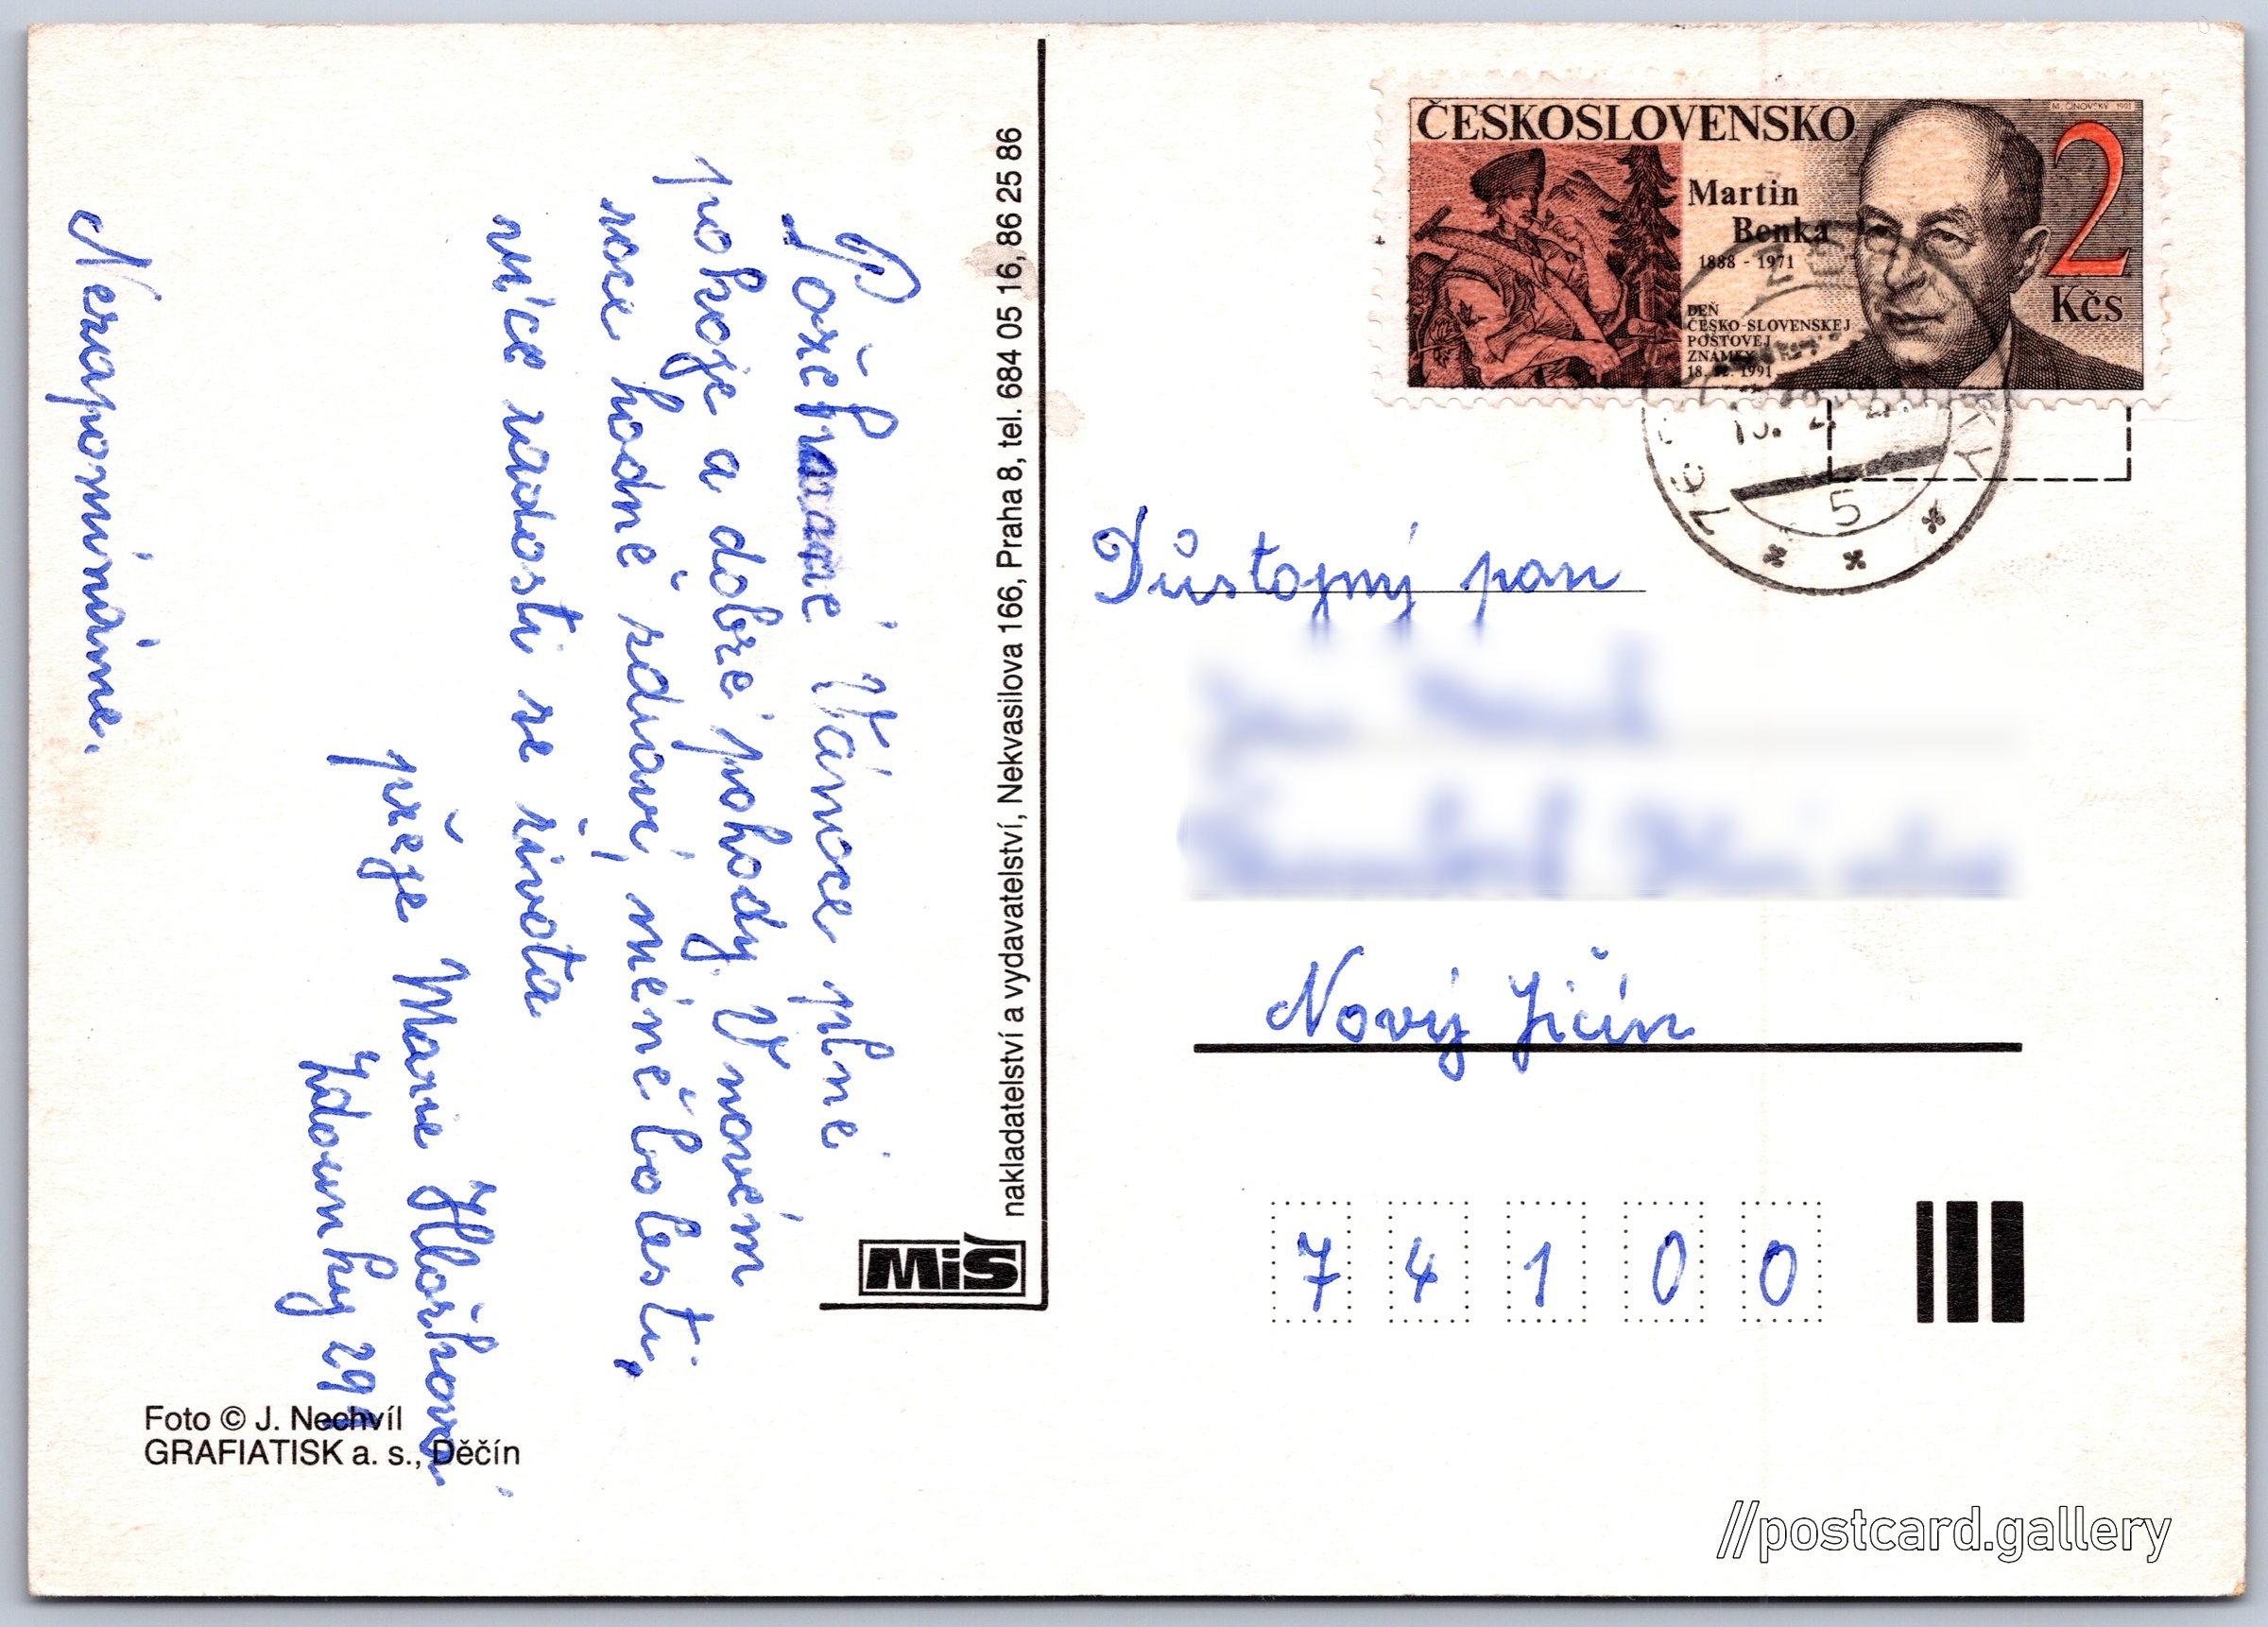 Požehnané Vánoce plné
pokoje a dobré pohody. V novém
roce hodně zdraví, méně bolesti,
více radosti ze života
přeje Marie
Zdounky 29
Nezapomínáme.
nakladatelství a vydavatelství, Nekvasilova 166, Praha 8, tel. 684 05 16, 86 25 86
MiŠ
Foto © J. Nechvíl
GRAFIATISK a. s., Děčín
ČESKOSLOVENSKO
M. ČINOVSKÝ 1991
2
Kčs
Martin
Benka
1888 - 1971
DEŇ
ČESKO-SLOVENSKEJ
POŠTOVEJ
ZNÁMKY
18. 12. 1991
5
Důstojný pan
Nový Jičín
7 4 1 0 0
//postcard.gallery